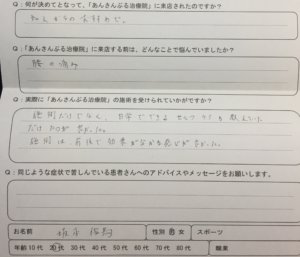 Q：何が決めてとなって、「あんさんぶる治療院」に来店されたのですか？
知人からの
Q：「あんさんぶる治療院」に来店する前は、どんなことで悩んでいましたか？
腰の痛み
Q：実際に「あんさんぶる治療院」の施術を受けられていかがですか？
施術だけでなく、自宅でできるセルフケアも教えていた
だけたのが良かった。
施術は、前後で効果が
Q：同じような症状で苦しんでいる患者さんへのアドバイスやメッセージをお願いします。
お名前 性別 男 女 スポーツ
年齢 10代 20代 30代 40代 50代 60代 70代 80代 職業